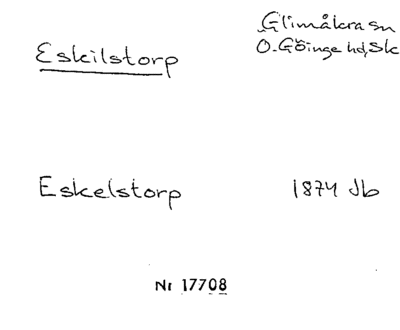 Eskilstorp
Glimåkra sn
Ö. Göinge hd, Sk
Eskelstorp
1874 Jb
Nr 17708